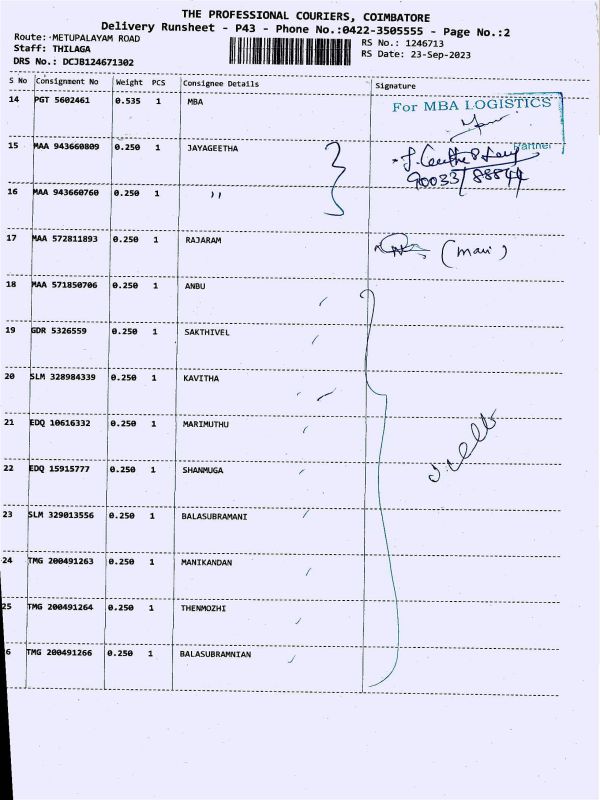 THE PROFESSIONAL COURIERS, COIMBATORE
Delivery Runsheet - P43 - Phone No.:0422-3505555 - Page No.:2
Route: METUPALAYAM ROAD RS No.: 1246713
Staff: THILAGA RS Date: 23-Sep-2023
DRS No.: DCJB124671302
S No Consignment No Weight PCS Consignee Details Signature
14 PGT 5602461 0.535 1 MBA
For MBA LOGISTICS
Partner
15 MAA 943660809 0.250 1 JAYAGEETHA
90033/88844
16 MAA 943660760 0.250 1 ,,
17 MAA 572811893 0.250 1 RAJARAM (mani)
18 MAA 571850706 0.250 1 ANBU
19 GDR 5326559 0.250 1 SAKTHIVEL
20 SLM 328984339 0.250 1 KAVITHA
21 EDQ 10616332 0.250 1 MARIMUTHU
22 EDQ 15915777 0.250 1 SHANMUGA
23 SLM 329013556 0.250 1 BALASUBRAMANI
24 TMG 200491263 0.250 1 MANIKANDAN
25 TMG 200491264 0.250 1 THENMOZHI
6 TMG 200491266 0.250 1 BALASUBRAMNIAN